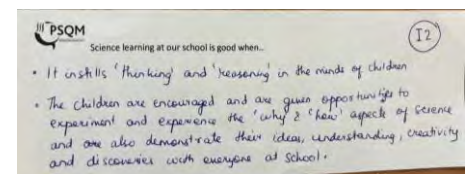 PSQM
I2
Science learning at our school is good when..
• It instills 'thinking' and 'reasoning' in the minds of children
• The children are encouraged and are given opportunities to
experiment and experience the 'why' & 'how' aspect of science
and are also demonstrate their ideas, understanding, creativity
and discoveries with everyone at school.